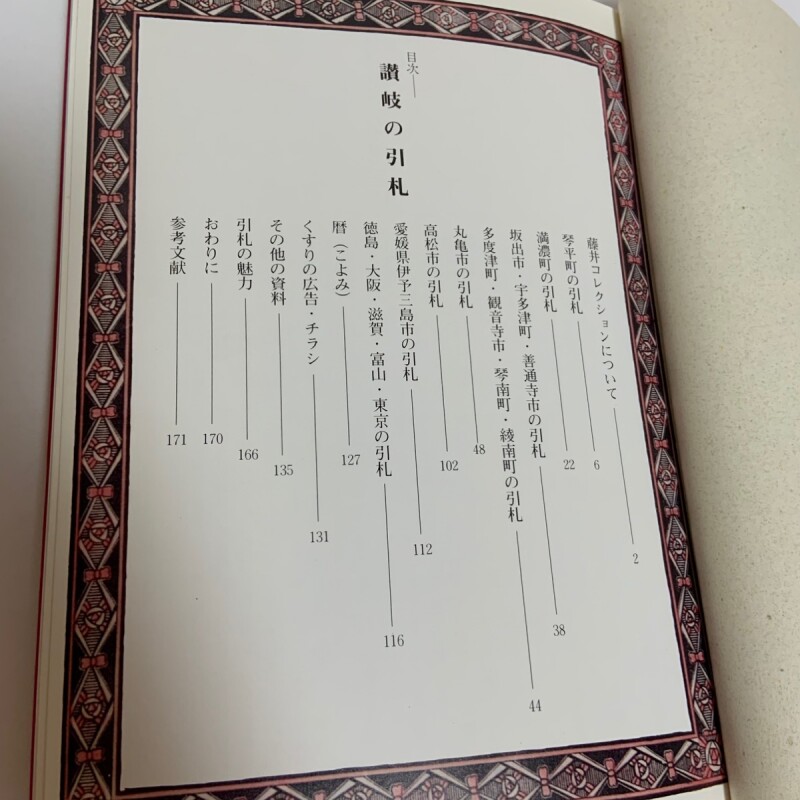 目次──
讃岐の引札
藤井コレクションについて──2
琴平町の引札──6
満濃町の引札──22
坂出市・宇多津町・善通寺市の引札──38
多度津町・観音寺市・琴南町・綾南町の引札──44
丸亀市の引札──48
高松市の引札──102
愛媛県伊予三島市の引札──112
徳島・大阪・滋賀・富山・東京の引札──116
暦（こよみ）──127
くすりの広告・チラシ──131
その他の資料──135
引札の魅力──166
おわりに──170
参考文献──171